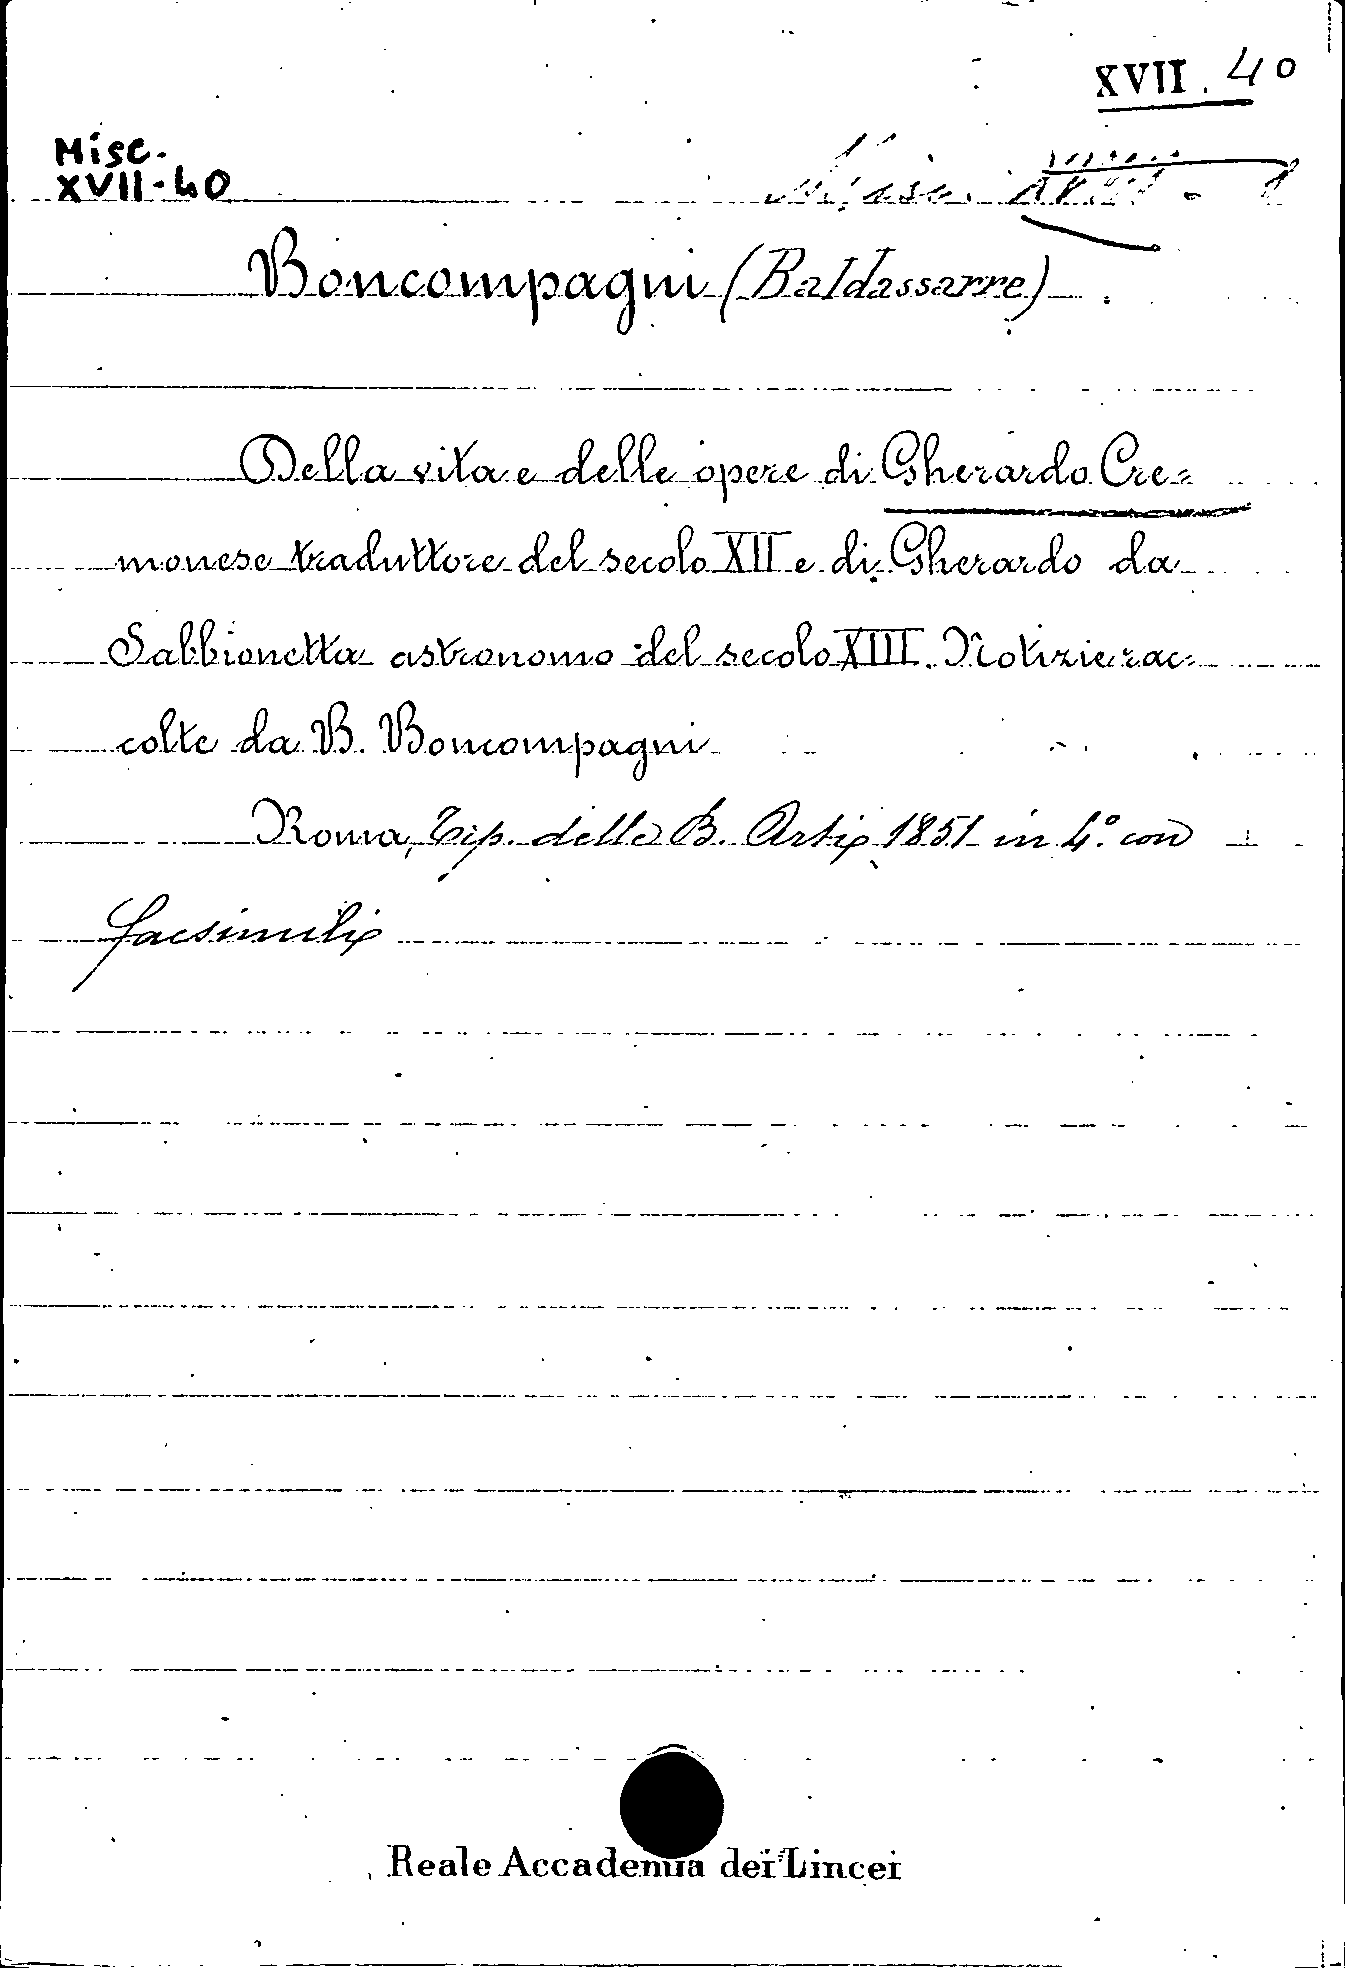 XVII. 40
Misc.
XVII-40
Misc.
Boncompagni (Baldassarre)
Della vita e delle opere di Gherardo Cre=
monese traduttore del secolo XII e di Gherardo da
Sabbionetta astronomo del secolo XIII. Notizie rac=
colte da B. Boncompagni
Roma, Tip. delle B. Arti, 1851 in 4.° con
facsimili
Reale Accademia dei Lincei